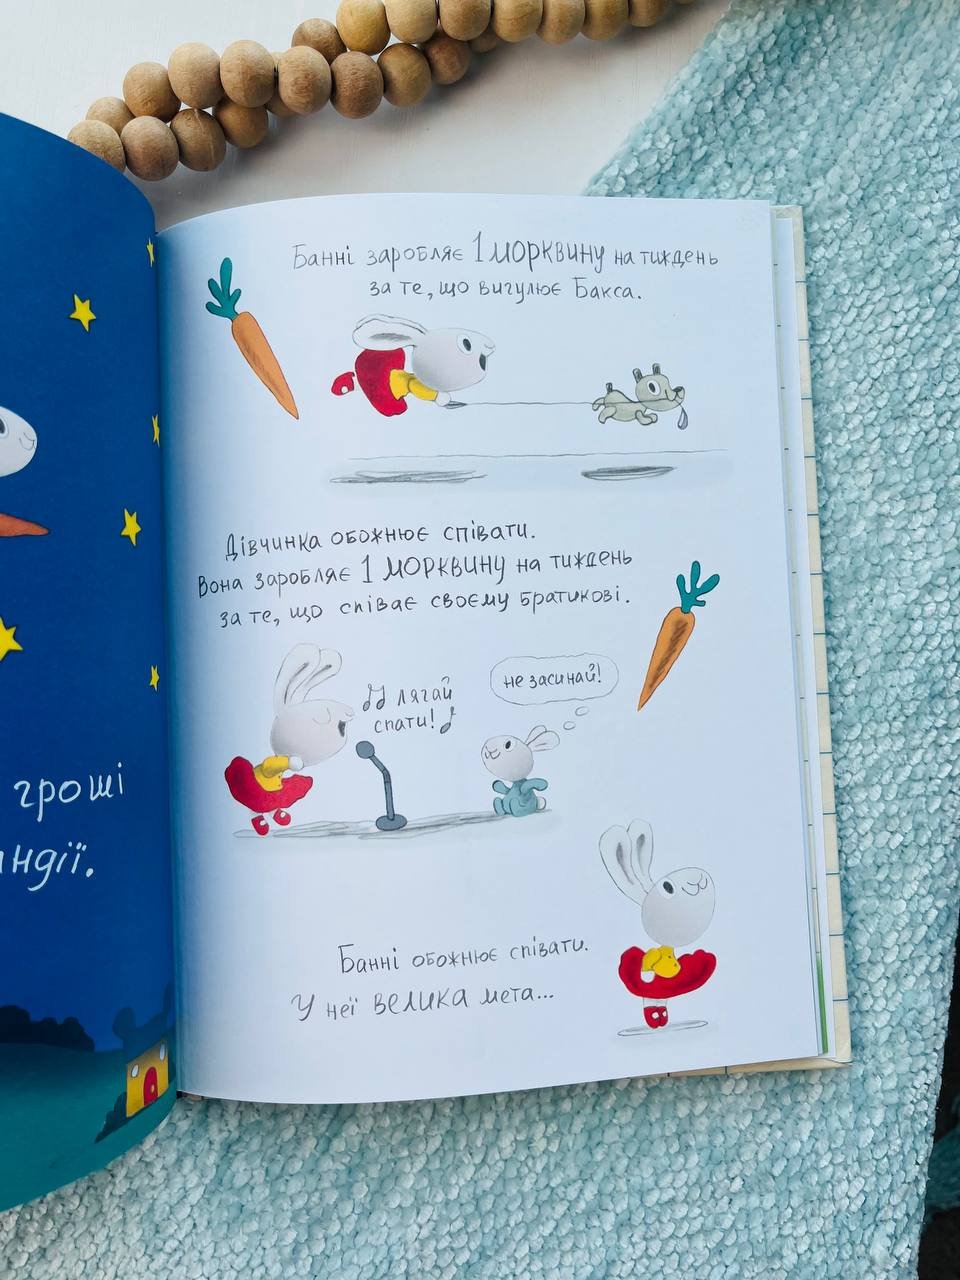 гроші
Банні заробляє 1 морквину на тиждень
за те, що вигулює Бакса.
Дівчинка обожнює співати.
Вона заробляє 1 морквину на тиждень
за те, що співає своєму братикові.
лягай
спати!
не засинай!
Банні обожнює співати.
У неї велика мета...